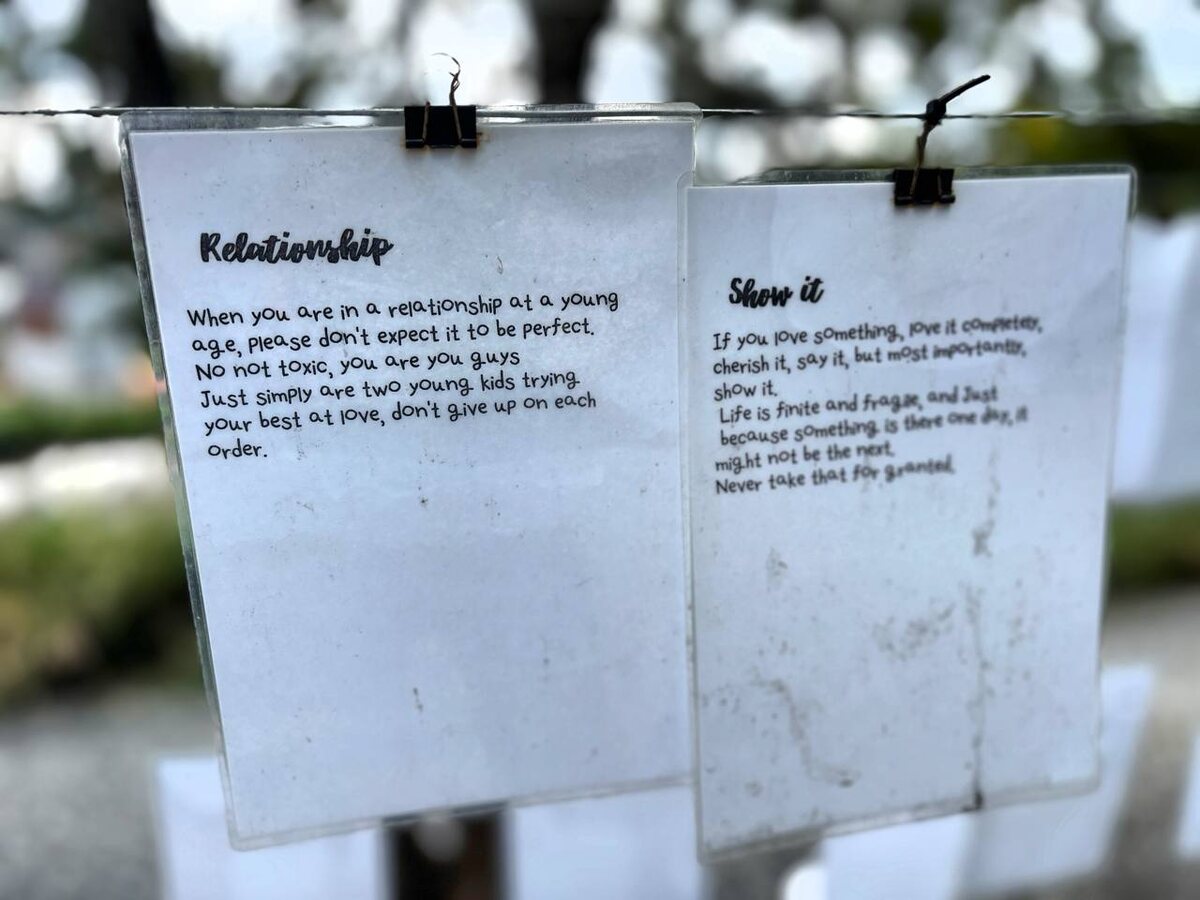 Relationship
When you are in a relationship at a young
age, please don't expect it to be perfect.
No not toxic, you are you guys
Just simply are two young kids trying
your best at love, don't give up on each
order.
Show it
If you love something, love it completely,
cherish it, say it, but most importantly,
show it.
Life is finite and fragile, and Just
because something is there one day, it
might not be the next.
Never take that for granted.